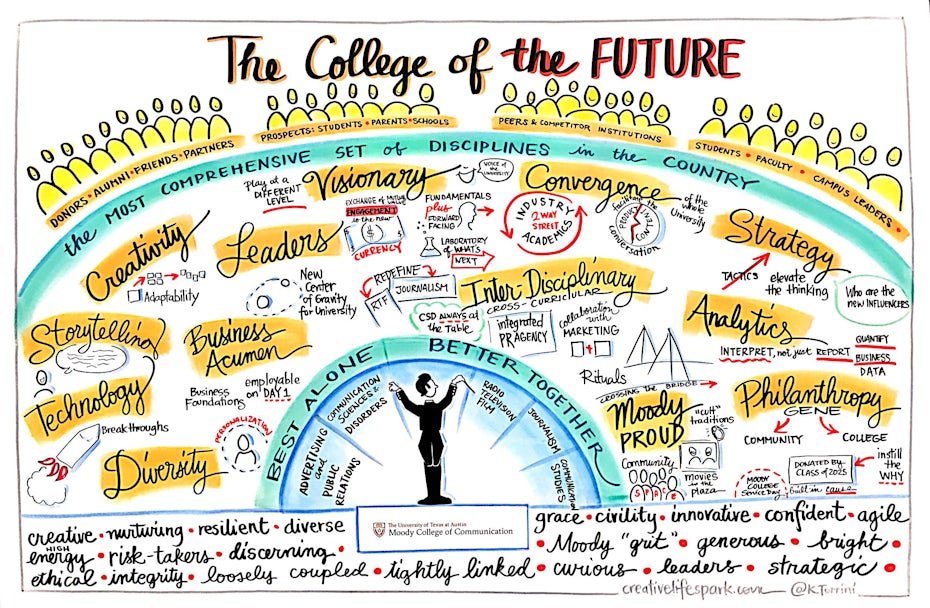 The College of the FUTURE
DONORS • ALUMNI • FRIENDS • PARTNERS
PROSPECTS: STUDENTS • PARENTS • SCHOOLS
PEERS & COMPETITOR INSTITUTIONS
STUDENTS • FACULTY • CAMPUS LEADERS •
the MOST COMPREHENSIVE SET of DISCIPLINES in the COUNTRY
Creativity
Adaptability
Leaders
New
Center
of Gravity
for University
Play at a
DIFFERENT
LEVEL
Visionary
VOICE of
the
UNIVERSITY
EXCHANGE of MUTUAL VALUE
ENGAGEMENT
is the new
CURRENCY
FUNDAMENTALS
plus
FORWARD
FACING
LABORATORY
of WHAT'S
NEXT
Convergence
of the
whole
University
INDUSTRY
2 WAY
STREET
ACADEMICS
facilitate the
conversation
Strategy
TACTICS
elevate
the thinking
Who are the
new INFLUENCERS
REDEFINE
RTF
JOURNALISM
CSD ALWAYS at
the Table
Inter-Disciplinary
CROSS-CURRICULAR
integrated
PR AGENCY
collaboration
with
MARKETING
Analytics
INTERPRET, not just REPORT
QUANTIFY
BUSINESS
DATA
Storytelling
Business
Acumen
Business
Foundations
employable
on DAY 1
Technology
Breakthroughs
PERSONALIZATION
Diversity
Rituals
CROSSING the BRIDGE
Moody
PROUD
"cult"
traditions
Community
movies
in the
plaza
MOODY
COLLEGE
SERVICE DAY
Philanthropy
GENE
COMMUNITY
COLLEGE
DONATED BY
CLASS of 2025
built-in cause
instill
the
WHY
BEST ALONE
BETTER TOGETHER
ADVERTISING
and
PUBLIC
RELATIONS
COMMUNICATION
SCIENCES &
DISORDERS
RADIO
TELEVISION
FILM
JOURNALISM
COMMUNICATION
STUDIES
The University of Texas at Austin
Moody College of Communication
creative • nurturing • resilient • diverse
HIGH
energy • risk-takers • discerning •
ethical • integrity • loosely coupled • tightly linked • curious • leaders • strategic •
grace • civility • innovative • confident • agile
• Moody "grit" • generous • bright •
creativelifespark.com
@K.Torrini